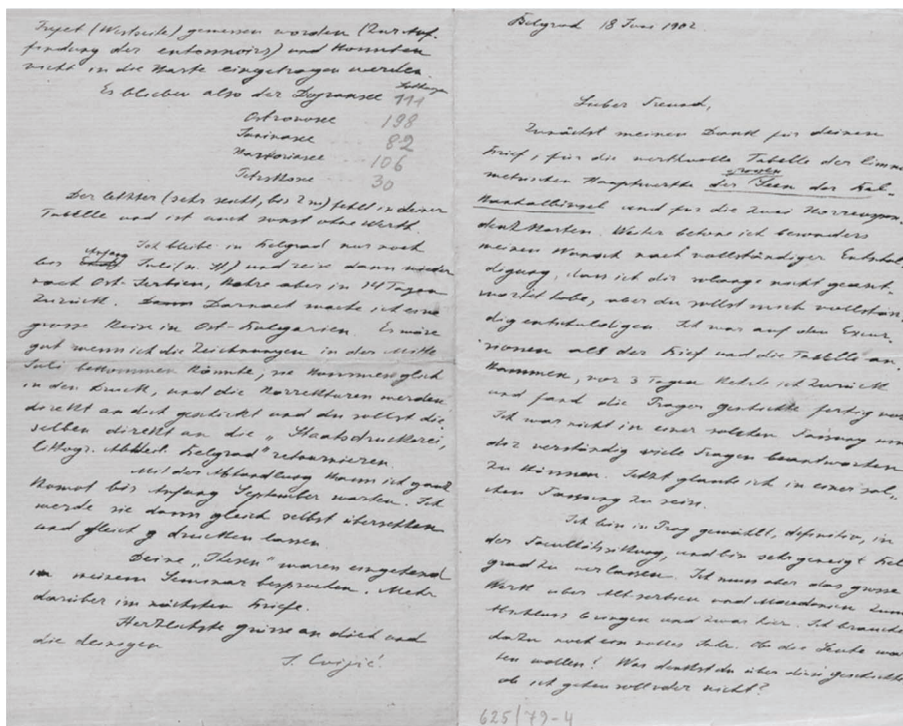 Belgrad 18 Juni 1902
Lieber Freund,
Zunächst meinen Dank für deinen
Brief, für die werthvolle Tabelle der limno-
metrischen Hauptwerthe der grossen Seen der Bal-
kanhalbinsel und für die zwei Korrespon-
denzkarten. Weiter betone ich besonders
meinen Wunsch nach vollständiger Entschul-
digung, dass ich dir solange nicht geant-
wortet habe, aber du sollst mich vollstän-
dig entschuldigen. Ich war auf den Excur-
sionen als der Brief und die Tabelle an-
kammen, vor 3 Tagen kehrte ich zurück
und fand die
Ich war nicht in einer solchen Fassung um
das verständig viele Fragen beantworten
zu können. Jetzt glaube ich in einer sol-
chen Fassung zu sein.
Ich bin in Prag gewählt, definitiv, in
der Facultätssitzung, und bin sehr geneigt Bel-
grad zu verlassen. Ich muss aber das grosse
Werk über Altserbien und Macedonien zum
Abschluss bringen und zwar hier. Ich brauche
dazu noch ein volles Jahr. Ob die Leute war-
ten wollen? Was denkst du über diese Geschichte
ob ich gehen soll oder nicht?
625/79-4
(Westseite) gemessen worden (Zur Auf-
findung der entonnoirs) und konnten
nicht in die Karte eingetragen werden.
Lothungen
Es blieben also der Dojransee 111
Ostrovosee 198
Janinasee 82
Kastoriasee 106
Petrskosee 30
Der letzter (sehr seicht, bis 2 m) fehlt in deiner
Tabelle und ist auch sonst ohne Werth.
Ich bleibe in Belgrad nur noch
bis Anfang Juli (n. St) und reise dann wieder
nach Ost-Serbien, kehre aber in 14 Tagen
zurück. Darnach mache ich eine
grosse Reise in Ost-Bulgarien. Es wäre
gut wenn ich die Zeichnungen in der Mitte
Juli bekommen könnte; sie kommen gleich
in den Druck, und die Korrekturen werden
direkt an dich geschickt und du sollst die-
selben direkt an die „Staatsdruckerei,
lithogr. Abtheil. Belgrad" retournieren.
Mit der Abhandlung kann ich ganz
komot bis Anfang September warten. Ich
werde sie dann gleich selbst übersetzen
und gleich drucken lassen.
Deine „Thesen" waren eingehend
in meinem Seminar besprochen. Mehr
darüber im nächsten Briefe.
Herzlichste grüsse an dich und
die deinigen
J. Cvijić.